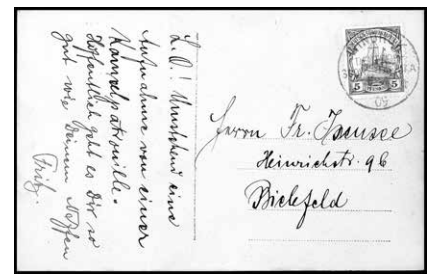 L. O! Umstehend eine
Aufnahme von einer
Kamelpatrouille.
Hoffentlich geht es Dir so
gut wie Deinem Neffen
Fritz.
5 5
09
Herrn Fr.
Heinrichstr. 9b
Bielefeld